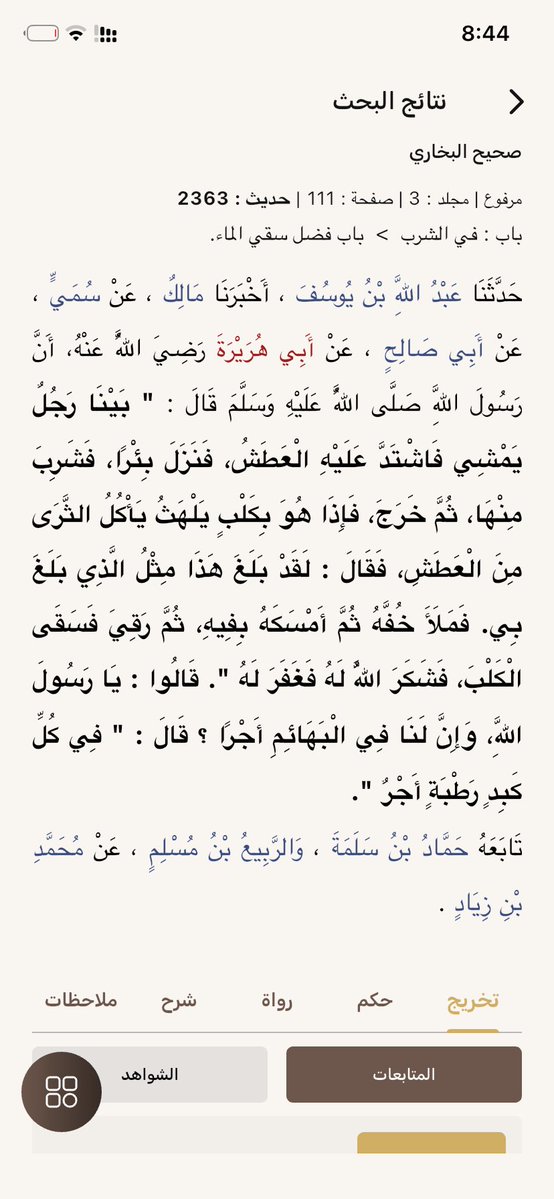 8:44
نتائج البحث
صحيح البخاري
مرفوع | مجلد : 3 | صفحة : 111 | حديث : 2363
باب : في الشرب > باب فضل سقي الماء.
حَدَّثَنَا عَبْدُ اللَّهِ بْنُ يُوسُفَ ، أَخْبَرَنَا مَالِكٌ ، عَنْ سُمَيٍّ ،
عَنْ أَبِي صَالِحٍ ، عَنْ أَبِي هُرَيْرَةَ رَضِيَ اللَّهُ عَنْهُ، أَنَّ
رَسُولَ اللَّهِ صَلَّى اللَّهُ عَلَيْهِ وَسَلَّمَ قَالَ : " بَيْنَا رَجُلٌ
يَمْشِي فَاشْتَدَّ عَلَيْهِ الْعَطَشُ، فَنَزَلَ بِئْرًا، فَشَرِبَ
مِنْهَا، ثُمَّ خَرَجَ، فَإِذَا هُوَ بِكَلْبٍ يَلْهَثُ يَأْكُلُ الثَّرَى
مِنَ الْعَطَشِ، فَقَالَ : لَقَدْ بَلَغَ هَذَا مِثْلُ الَّذِي بَلَغَ
بِي. فَمَلَأَ خُفَّهُ ثُمَّ أَمْسَكَهُ بِفِيهِ، ثُمَّ رَقِيَ فَسَقَى
الْكَلْبَ، فَشَكَرَ اللَّهُ لَهُ فَغَفَرَ لَهُ ". قَالُوا : يَا رَسُولَ
اللَّهِ، وَإِنَّ لَنَا فِي الْبَهَائِمِ أَجْرًا ؟ قَالَ : " فِي كُلِّ
كَبِدٍ رَطْبَةٍ أَجْرٌ ".
تَابَعَهُ حَمَّادُ بْنُ سَلَمَةَ ، وَالرَّبِيعُ بْنُ مُسْلِمٍ ، عَنْ مُحَمَّدِ
بْنِ زِيَادٍ .
تخريج حكم رواة شرح ملاحظات
المتابعات الشواهد